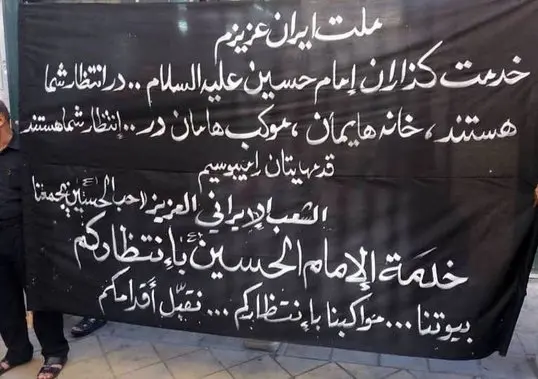 ملت ایران عزیزم
خدمت گذاران إمام حسین علیه السلام .. در انتظار شما
هستند ، خانه هایمان ، موکب هامان در .. إنتظار شما هستند
قدمهایتان را میبوسیم
الشعب الإيراني العزيز (حب الحسين يجمعنا
خدمة الإمام الحسين بإنتظاركم
بيوتنا ... مواكبنا بإنتظاركم ... نقبّل أقدامكم